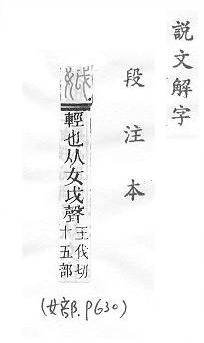 說文解字
段注本
輕也从女戉聲
王伐切
十五部
(女部. P630)